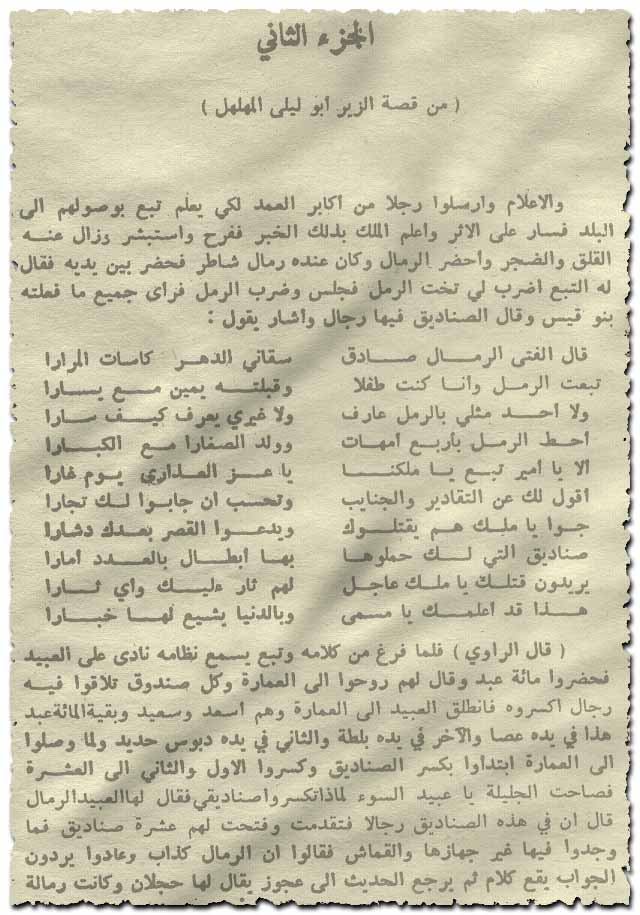 الجزء الثاني
( من قصة الزير أبو ليلى المهلهل )
والاعلام وارسلوا رجلا من اكابر العمد لكي يعلم تبع بوصولهم الى
البلد فسار على الاثر وأعلم الملك بذلك الخبر ففرح واستبشر وزال عنه
القلق والضجر واحضر الرمال وكان عنده رمال شاطر فحضر بين يديه فقال
له التبع اضرب لي تخت الرمل فجلس وضرب الرمل فرأى جميع ما فعلته
بنو قيس وقال الصناديق فيها رجال وأشار يقول :
قال الفتى الرمال صادق سقاني الدهر كاسات المرارا
تبعت الرمل وأنا كنت طفلا وقبلته يمين مع يسارا
ولا أحد مثلي بالرمل عارف ولا غيري يعرف كيف سارا
أحط الرمل بأربع أمهات وولد الصغارا مع الكبارا
ألا يا أمير تبع يا ملكنا يا عز العذارى يوم غارا
اقول لك عن التقادير والجنايب وتحسب ان جابوا لك تجارا
جوا يا ملك هم يقتلوك ويدعوا القصر بعدك دشارا
صناديق التي لك حملوها بها أبطال بالعدد أمارا
يريدون قتلك يا ملك عاجل لهم ثار عليك وأي ثارا
هذا قد أعلمك يا مسمى وبالدنيا يشيع لها خبارا
( قال الراوي ) فلما فرغ من كلامه وتبع يسمع نظامه نادى على العبيد
فحضروا مائة عبد وقال لهم روحوا الى العمارة وكل صندوق تلاقوا فيه
رجال اكسروه فانطلق العبيد الى العمارة وهم أسعد وسعيد وبقية المائة عبد
هذا في يده عصا والآخر في يده بلطة والثاني في يده دبوس حديد ولما وصلوا
الى العمارة ابتدأوا بكسر الصناديق وكسروا الاول والثاني الى العشرة
فصاحت الجليلة يا عبيد السوء لماذا تكسروا صناديقي فقال لها العبيد الرمال
قال ان في هذه الصناديق رجالا فتقدمت وفتحت لهم عشرة صناديق فما
وجدوا فيها غير جهازها والقماش فقالوا ان الرمال كذاب وعادوا يردون
الجواب يقع كلام ثم يرجع الحديث الى عجوز يقال لها حجلان وكانت رمالة